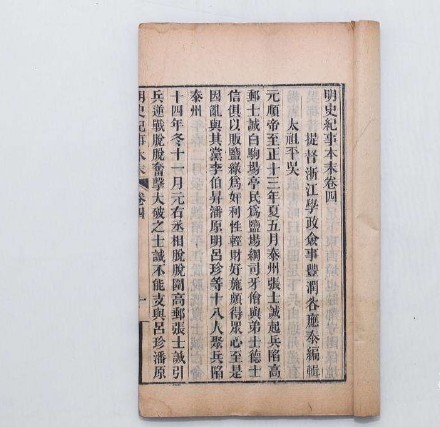 明史紀事本末卷四
提督浙江學政僉事豐潤谷應泰編輯
太祖平吳
元順帝至正十三年夏五月泰州張士誠起兵陷高
郵士誠白駒場亭民爲鹽場綱司牙儈與弟士德士
信俱以販鹽緣爲奸利性輕財好施頗得眾心至是
因亂與其黨李伯昇潘原明呂珍等十八人聚兵陷
泰州
十四年冬十一月元右丞相脫脫圍高郵張士誠引
兵逆戰脫脫奮擊大破之士誠不能支與呂珍潘原
明史紀事本末 卷四 一